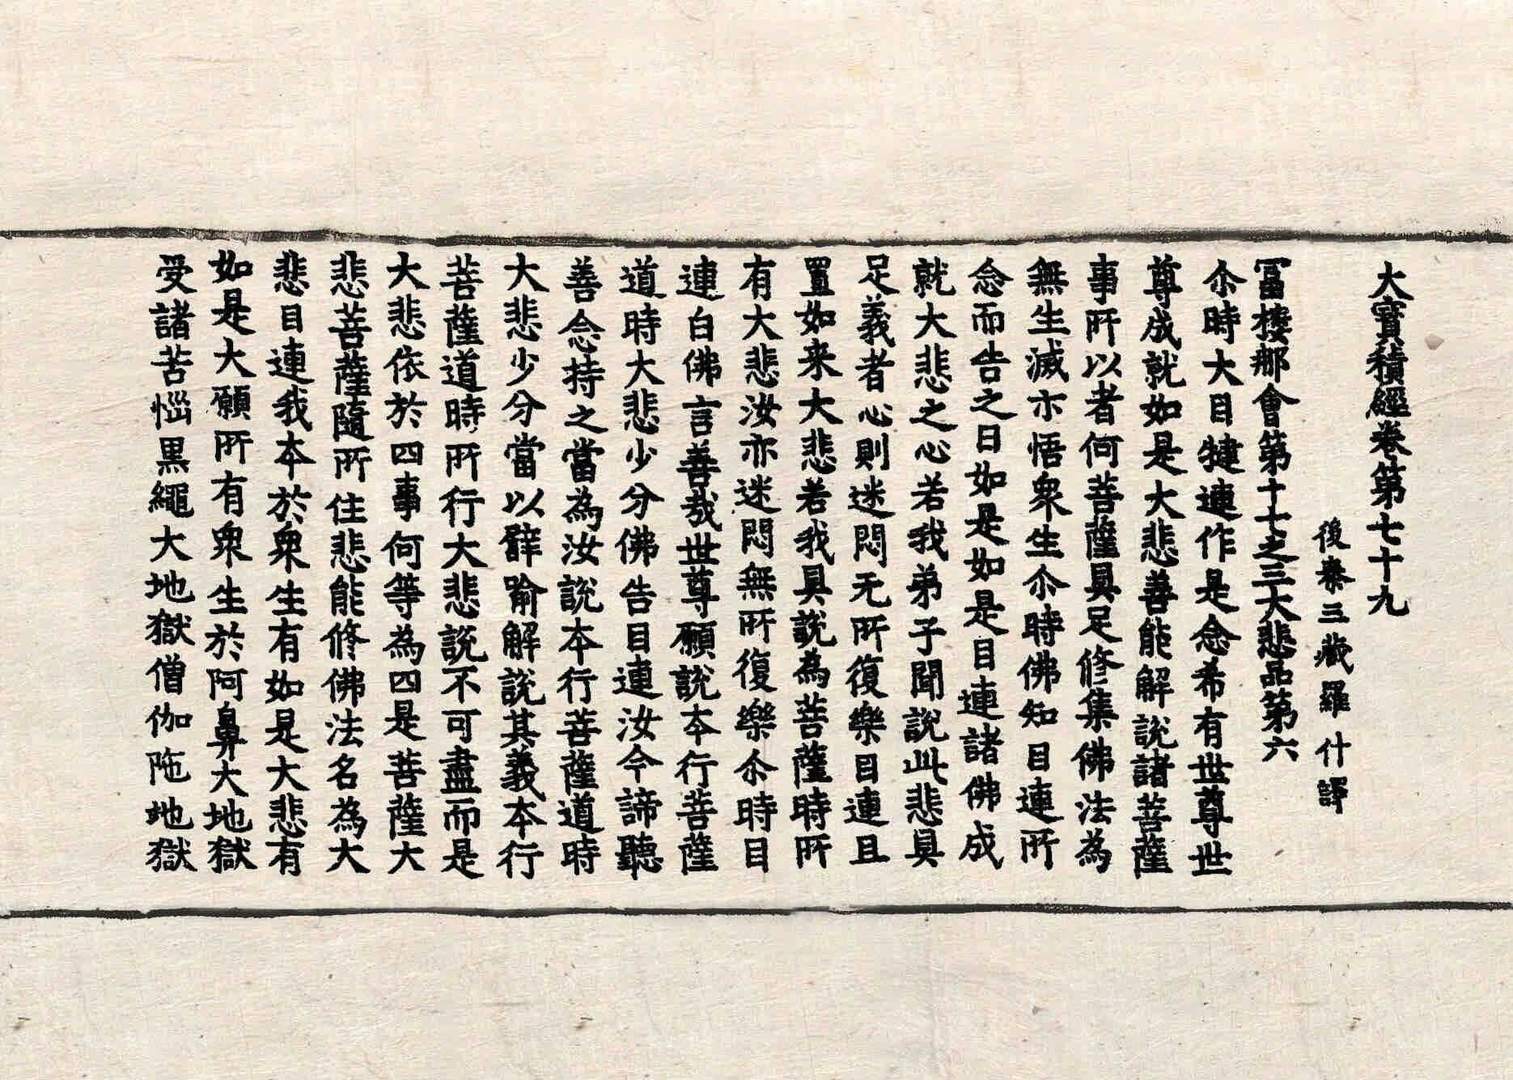 大寶積經卷第七十九
後秦三藏羅什譯
冨樓那會第十七之三大悲品第六
尒時大目犍連作是念希有世尊世
尊成就如是大悲善能解說諸菩薩
事所以者何菩薩具足修集佛法為
無生滅亦悟衆生尒時佛知目連所
念而告之曰如是如是目連諸佛成
就大悲之心若我弟子聞說此悲具
足義者心則迷悶无所復樂目連且
置如来大悲若我具說為菩薩時所
有大悲汝亦迷悶無所復樂尒時目
連白佛言善哉世尊願說本行菩薩
道時大悲少分佛告目連汝今諦聽
善念持之當為汝說本行菩薩道時
大悲少分當以譬喻解說其義本行
菩薩道時所行大悲說不可盡而是
大悲依於四事何等為四是菩薩大
悲菩薩隨所住悲能修佛法名為大
悲目連我本於衆生有如是大悲有
如是大願所有衆生於阿鼻大地獄
受諸苦惱黒繩大地獄僧伽陁地獄